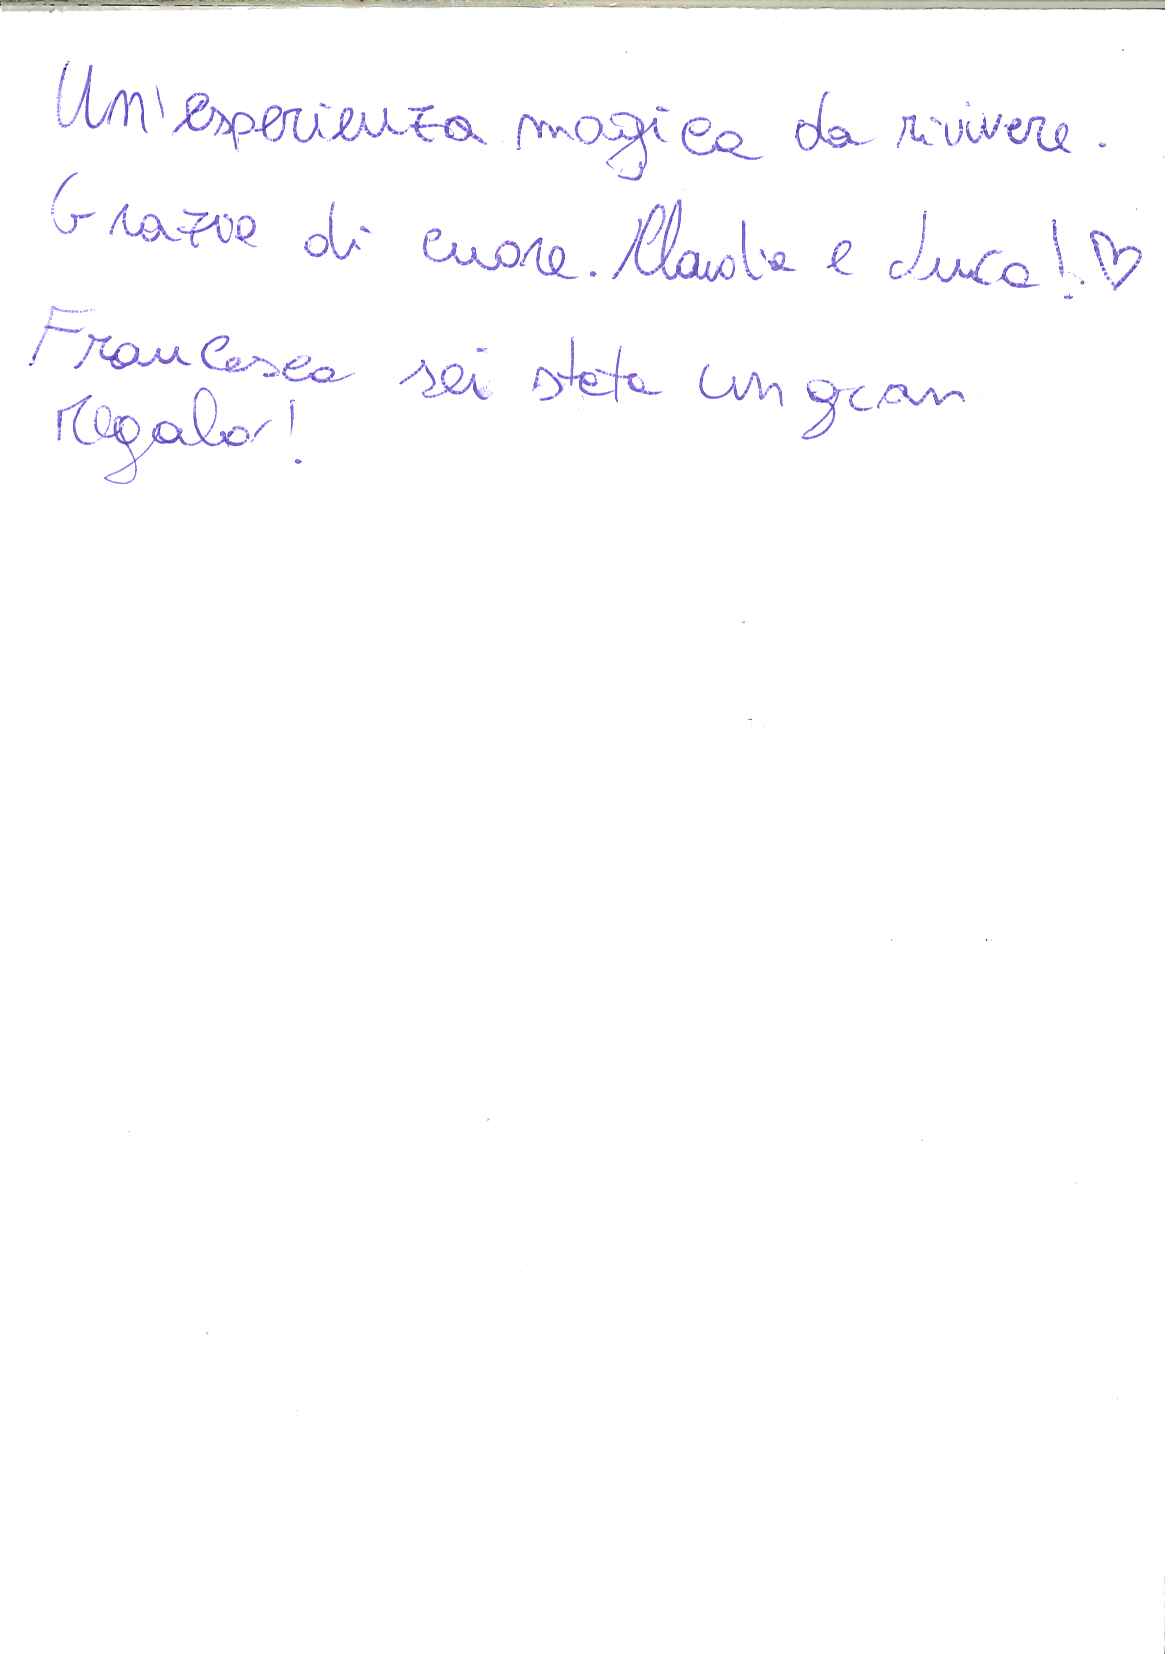 Un'esperienza magica da rivivere.
Grazie di cuore. Claudia e Luca! ♡
Francesca sei stata un gran
regalo!